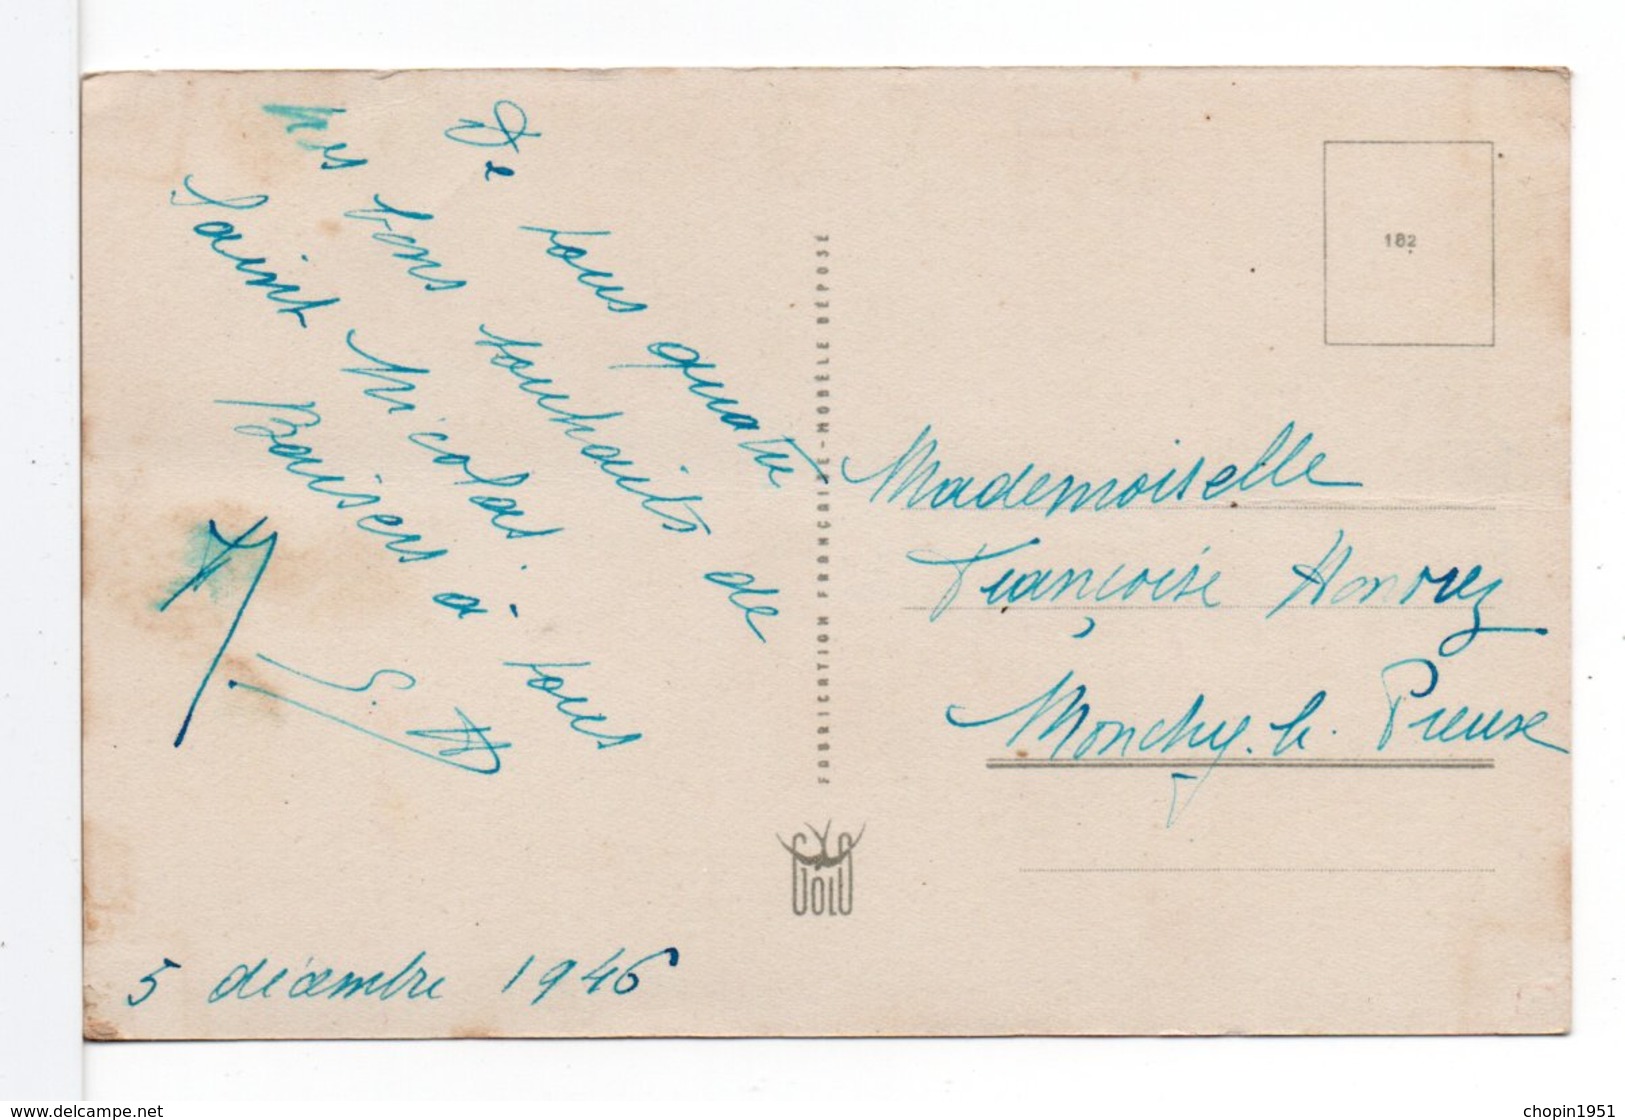 De tous quatre
nos bons souhaits de
Saint Nicolas.
Baisers à tous
5 décembre 1946
FABRICATION FRANÇAISE - MODÈLE DÉPOSÉ
182
Mademoiselle
Françoise Honorez
Monchy. h. Preuse
www.delcampe.net
chopin1951